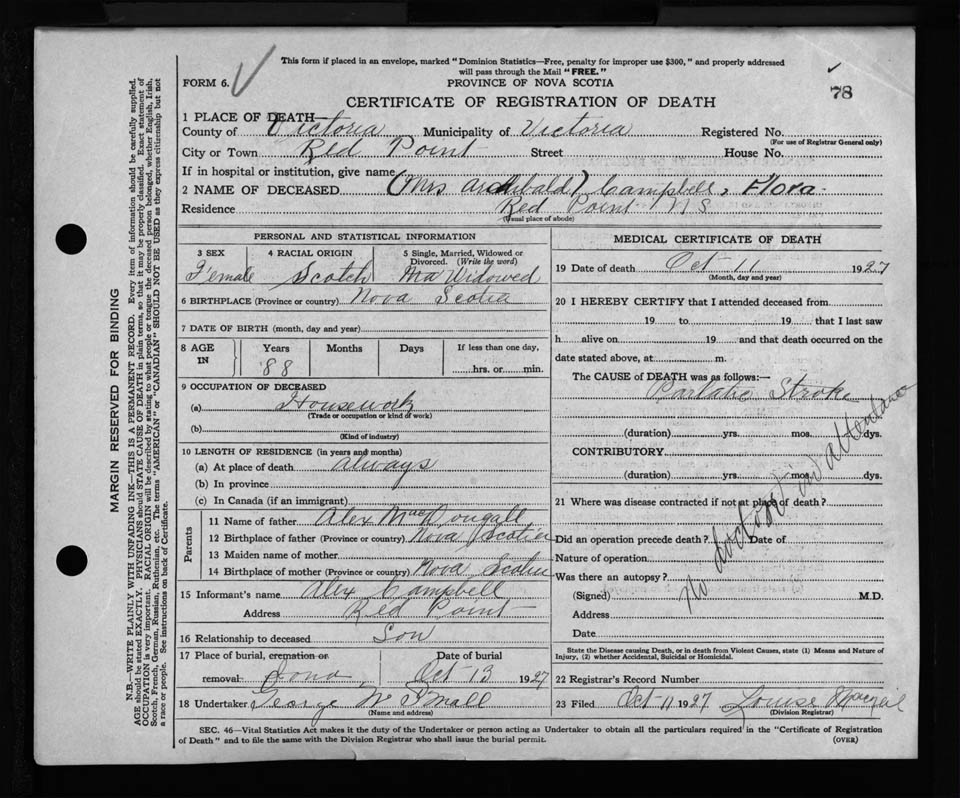 This form if placed in an envelope, marked "Dominion Statistics—Free, penalty for improper use $300," and properly addressed
will pass through the Mail "FREE."
FORM 6.
PROVINCE OF NOVA SCOTIA
78
CERTIFICATE OF REGISTRATION OF DEATH
1 PLACE OF DEATH—
County of Victoria Municipality of Victoria Registered No.
(For use of Registrar General only)
City or Town Red Point Street House No.
If in hospital or institution, give name
2 NAME OF DECEASED (Mrs Archibald) Campbell, Flora
Residence Red Point N S
(Usual place of abode)
PERSONAL AND STATISTICAL INFORMATION
3 SEX 4 RACIAL ORIGIN 5 Single, Married, Widowed or
Divorced. (Write the word)
Female Scotch Ma Widowed
6 BIRTHPLACE (Province or country) Nova Scotia
7 DATE OF BIRTH (month, day and year)
8 AGE Years Months Days If less than one day,
IN 88 hrs. or min.
9 OCCUPATION OF DECEASED
(a) Housework
(Trade or occupation or kind of work)
(b)
(Kind of industry)
10 LENGTH OF RESIDENCE (in years and months)
(a) At place of death always
(b) In province
(c) In Canada (if an immigrant)
Parents
11 Name of father Alex MacDougall
12 Birthplace of father (Province or country) Nova Scotia
13 Maiden name of mother
14 Birthplace of mother (Province or country) Nova Scotia
15 Informant's name Alex Campbell
Address Red Point
16 Relationship to deceased Son
17 Place of burial, cremation or Date of burial
removal Iona Oct 13 1927
18 Undertaker George
(Name and address)
MEDICAL CERTIFICATE OF DEATH
19 Date of death Oct 11 1927
(Month, day and year)
20 I HEREBY CERTIFY that I attended deceased from
19 to 19 that I last saw
h alive on 19 and that death occurred on the
date stated above, at m.
The CAUSE of DEATH was as follows:—
Stroke
(duration) yrs. mos. dys.
CONTRIBUTORY
(duration) yrs. mos. dys.
21 Where was disease contracted if not at place of death?
Did an operation precede death? Date of
Nature of operation
Was there an autopsy?
(Signed) M.D.
Address
Date
No doctor in attendance
State the Disease causing Death, or in death from Violent Causes, state (1) Means and Nature of
Injury, (2) whether Accidental, Suicidal or Homicidal.
22 Registrar's Record Number
23 Filed Oct 11 1927 Louise
(Division Registrar)
SEC. 46—Vital Statistics Act makes it the duty of the Undertaker or person acting as Undertaker to obtain all the particulars required in the "Certificate of Registration
of Death" and to file the same with the Division Registrar who shall issue the burial permit. (OVER)
MARGIN RESERVED FOR BINDING
N.B.—WRITE PLAINLY WITH UNFADING INK—THIS IS A PERMANENT RECORD. Every item of information should be carefully supplied.
AGE should be stated EXACTLY. PHYSICIANS should STATE CAUSE OF DEATH in plain terms, so that it may be properly classified. Exact statement of
OCCUPATION is very important. RACIAL ORIGIN will be described by stating to what people or tongue the deceased person belonged, whether English, Irish,
Scotch, French, German, Russian, Ruthenian, etc. The terms "AMERICAN" or "CANADIAN" SHOULD NOT BE USED as they express citizenship but not
a race or people. See instructions on back of Certificate.